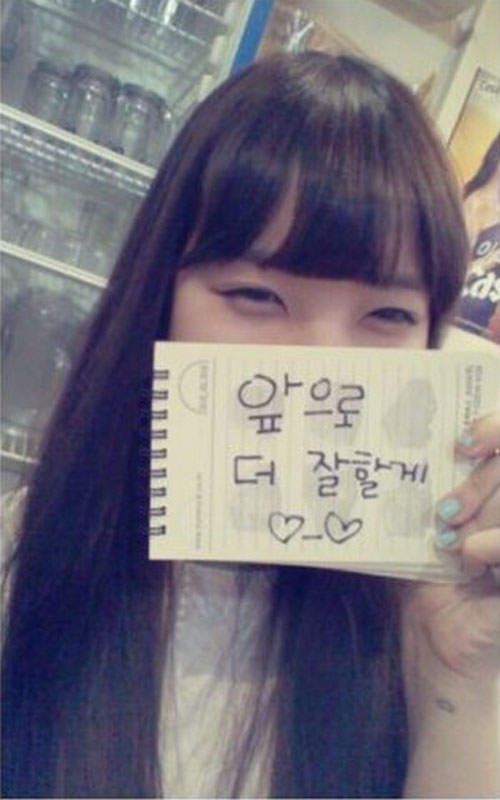 앞으로
더 잘할게
♡-♡